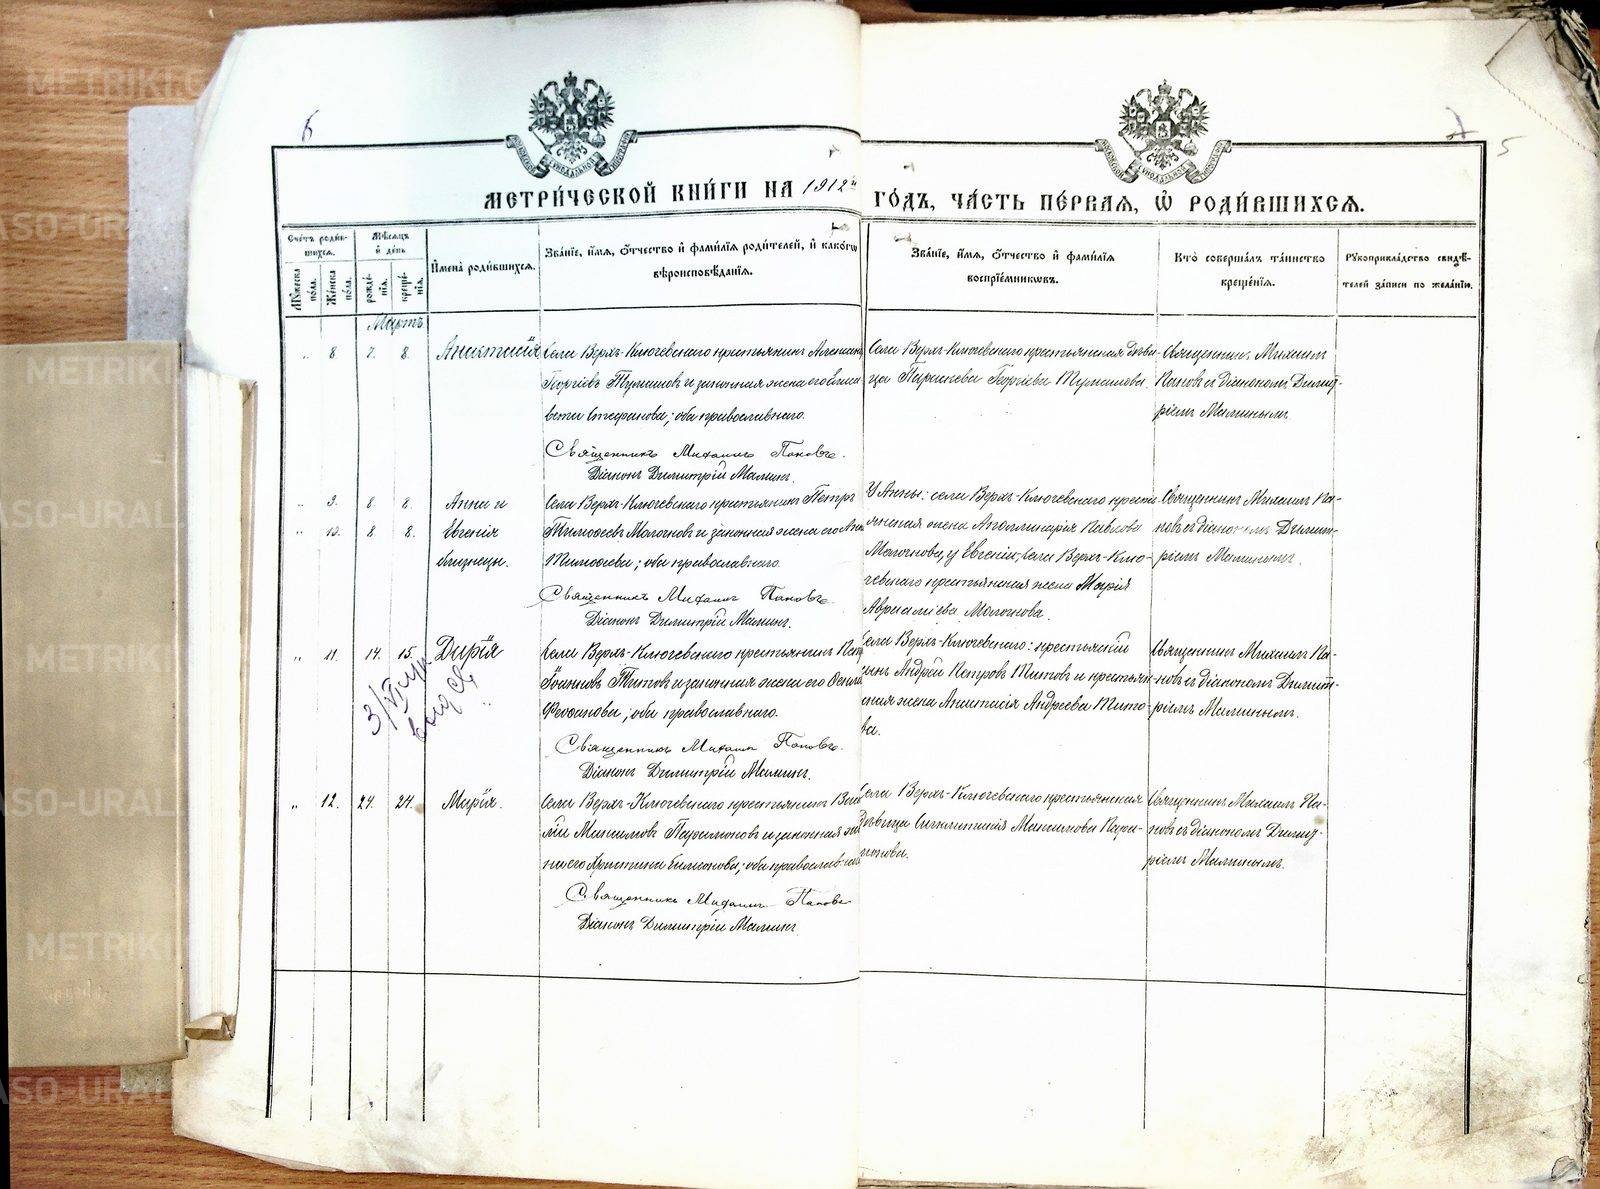 МЕТРИ́ЧЕСКОЙ КНИ́ГИ НА 1912й ГО́ДЪ, ЧА́СТЬ ПЕ́РВАЯ, Ѡ҆ РОДИ́ВШИХСЯ.
Сче́тъ роди́в-
шихся.
Му́жеска по́ла.
Же́нска по́ла.
Мѣ́сяцъ
и҆ де́нь
рожде́-
нїя.
креще́-
нїя.
И҆мена̀ роди́вшихся.
Зва́нїе, и҆́мя, ѻ҆́тчество и҆ фами́лїя роди́телей, и҆ како́гѡ
вѣроисповѣ́данїя.
Зва́нїе, и҆́мя, ѻ҆́тчество и҆ фами́лїя
воспрїе́мникѡвъ.
Кто̀ соверша́лъ та́инство
креще́нїя.
Рꙋкоприкла́дство свидѣ́-
телей за́писи по жела́нїю.
Мартъ
„ 8. 7. 8. Анастасія
Села Верхъ-Ключевскаго крестьянинъ
Георгіевъ Тушиновъ и законная жена его
вета Стефанова; оба православнаго.
Священникъ Михаилъ Поповъ.
Діаконъ Димитрій Малинъ.
Села Верхъ-Ключевскаго крестьянская дѣви-
ца Параскева Георгіева
Священникъ Михаилъ
Поповъ съ діакономъ Димит-
ріемъ Малинымъ.
„ 9. 8. 8. Анна и
„ 10. 8. 8. Евгенія
близнецы.
Села Верхъ-Ключевскаго крестьянинъ Петръ
Тимоѳеевъ Молочковъ и законная жена его
Тимоѳеева; оба православнаго.
Священникъ Михаилъ Поповъ.
Діаконъ Димитрій Малинъ.
У Анны: села Верхъ-Ключевскаго кресть-
янская жена Аполлинарія Павлова
Молочкова, у Евгеніи, села Верхъ-Клю-
чевскаго крестьянская жена Марія
Авраамíева Молочкова.
Священникъ Михаилъ По-
повъ съ діакономъ Димит-
ріемъ Малинымъ.
„ 11. 14. 15. Дарія
Села Верхъ-Ключевскаго крестьянинъ
Іоанновъ Титовъ и законная жена его
Ѳеофанова; оба православнаго.
Священникъ Михаилъ Поповъ.
Діаконъ Димитрій Малинъ.
Села Верхъ-Ключевскаго: крестьянскій
сынъ Андрей Петровъ Титовъ и крестьян-
ская жена Анастасія Андреева Тито-
ва.
Священникъ Михаилъ По-
повъ съ діакономъ Димит-
ріемъ Малинымъ.
„ 12. 24. 24. Марія.
Села Верхъ-Ключевскаго крестьянинъ
Максимовъ и законная
его Христина; оба православнаго
Священникъ Михаилъ Поповъ
Діаконъ Димитрій Малинъ.
Села Верхъ-Ключевскаго крестьянская
дѣвица Синклитикія Максимова
Священникъ Михаилъ По-
повъ съ діакономъ Димит-
ріемъ Малинымъ.
METRIKI
ASO-URAL